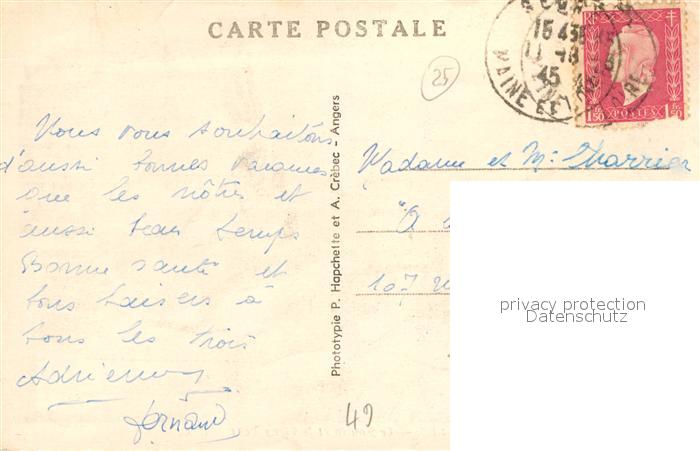 CARTE POSTALE
25
15 45
45
MAINE ET
RF
1f50 POSTES 1f50
Nous vous souhaitons
d'aussi bonnes vacances
que les nôtres et
aussi beau temps
Bonne santé et
bons baisers à
tous les trois
Fernand
Phototypie P. Hapchette et A. Crébec - Angers
Madame et Mr Charrier
107
49
privacy protection
Datenschutz